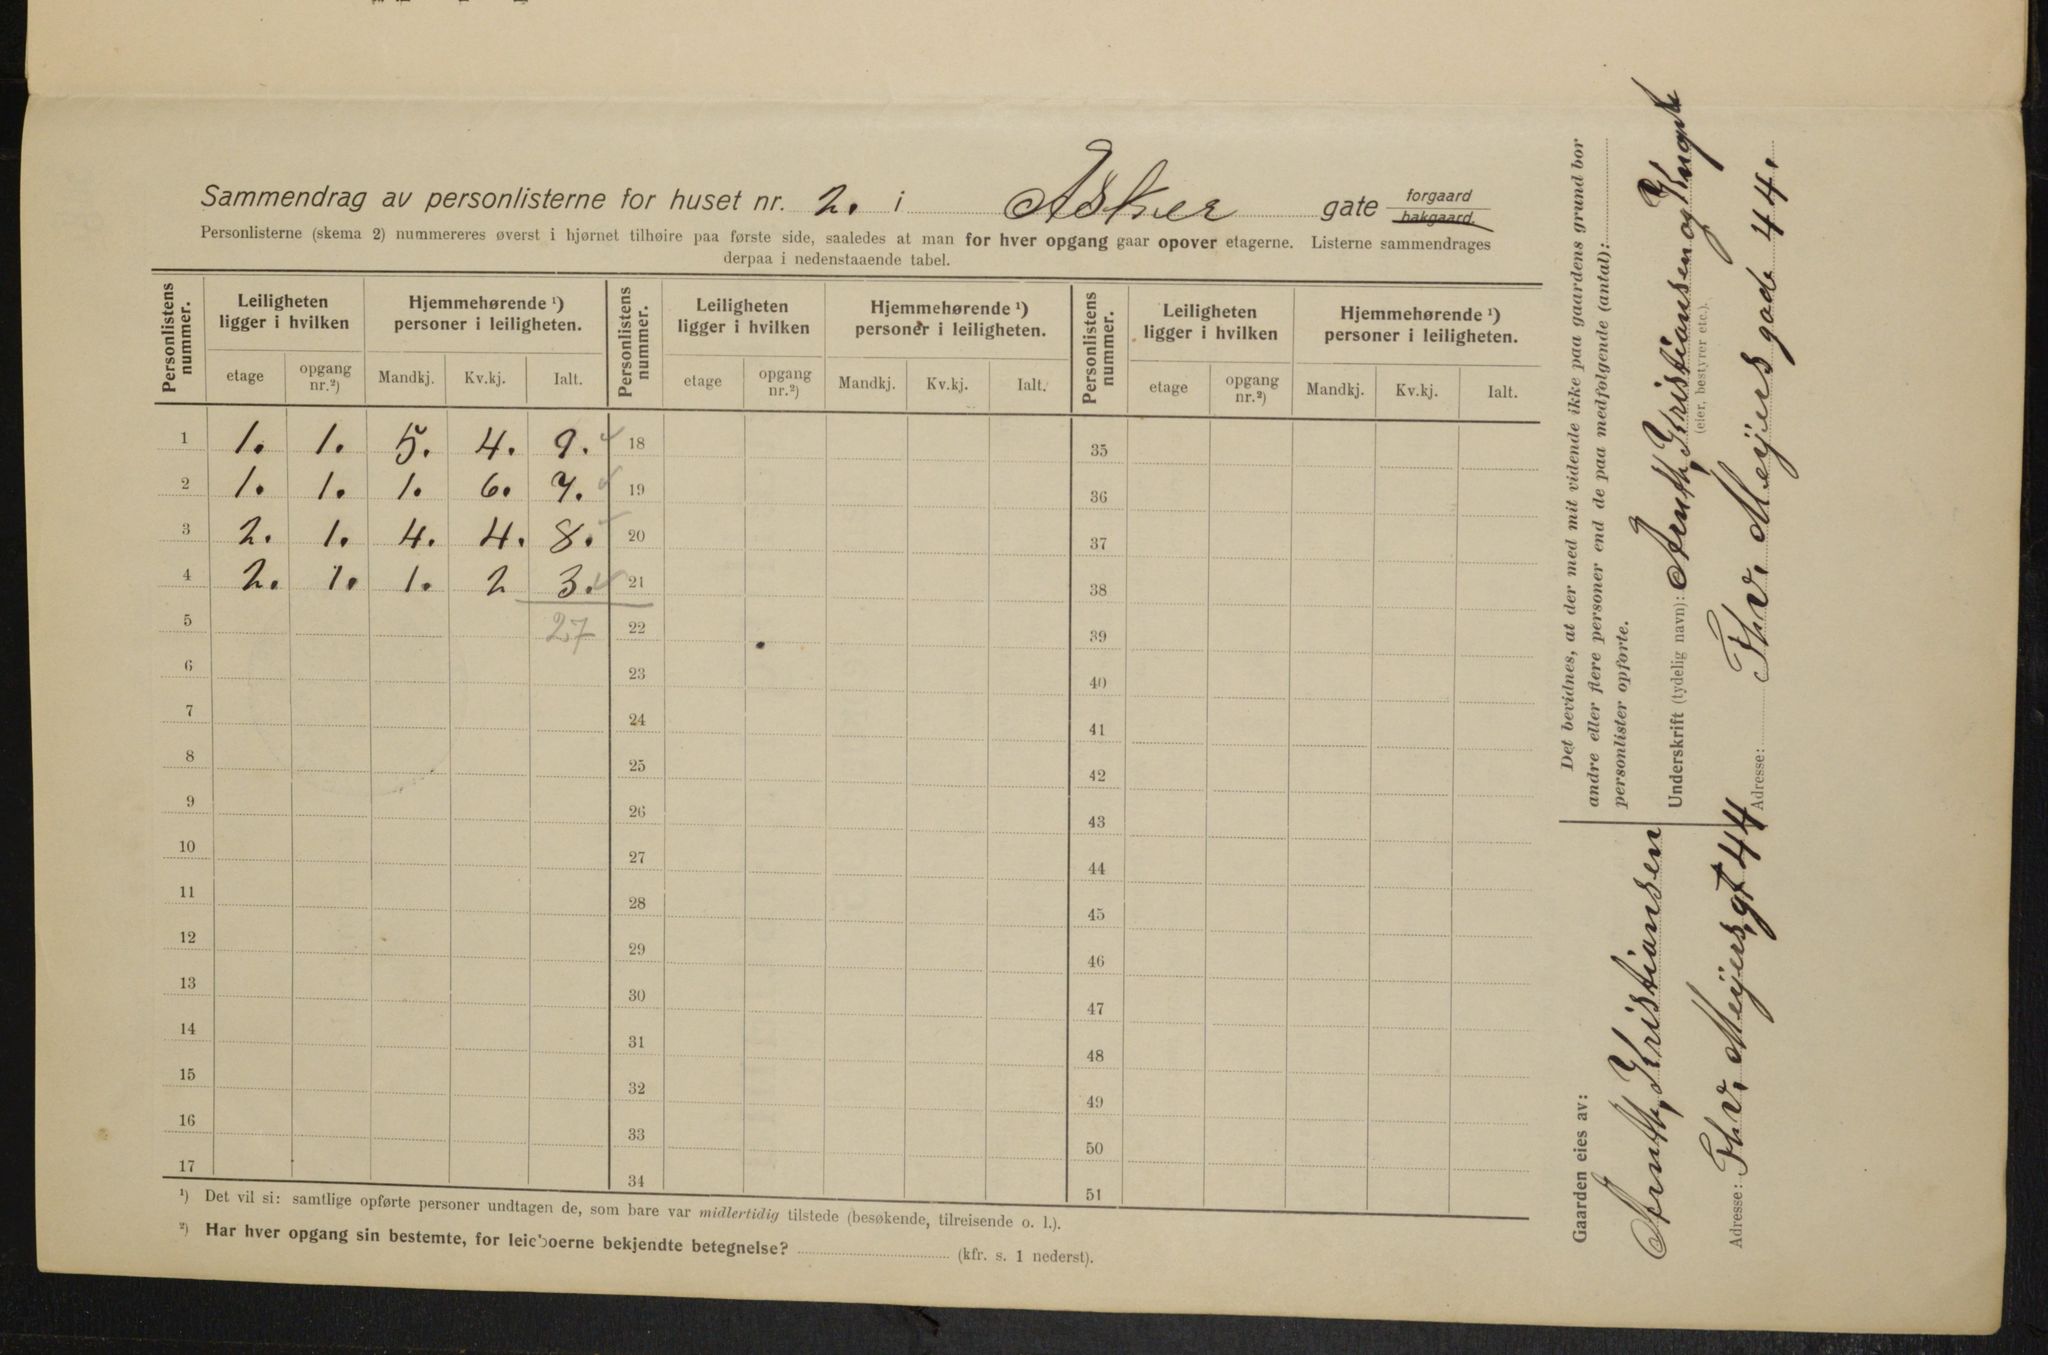 Sammendrag av personlisterne for huset nr. 2. i Asker gate forgaard bakgaard.
Personlisterne (skema 2) nummereres øverst i hjørnet tilhøire paa første side, saaledes at man for hver opgang gaar opover etagerne. Listerne sammendrages
derpaa i nedenstaaende tabel.
Personlistens nummer. Leiligheten ligger i hvilken Hjemmehørende ¹) personer i leiligheten. Personlistens nummer. Leiligheten ligger i hvilken Hjemmehørende ¹) personer i leiligheten. Personlistens nummer. Leiligheten ligger i hvilken Hjemmehørende ¹) personer i leiligheten.
etage opgang nr.²) Mandkj. Kv.kj. Ialt. etage opgang nr.²) Mandkj. Kv.kj. Ialt. etage opgang nr.²) Mandkj. Kv.kj. Ialt.
1 1. 1. 5. 4. 9. 18 35
2 1. 1. 1. 6. 7. 19 36
3 2. 1. 4. 4. 8. 20 37
4 2. 1. 1. 2 3. 21 38
5 27 22 39
6 23 40
7 24 41
8 25 42
9 26 43
10 27 44
11 28 45
12 29 46
13 30 47
14 31 48
15 32 49
16 33 50
17 34 51
¹) Det vil si: samtlige opførte personer undtagen de, som bare var midlertidig tilstede (besøkende, tilreisende o. l.).
²) Har hver opgang sin bestemte, for leieboerne bekjendte betegnelse? (kfr. s. 1 nederst).
Det bevidnes, at der med mit vidende ikke paa gaardens grund bor
andre eller flere personer end de paa medfølgende (antal):
personlister opførte.
Underskrift (tydelig navn): Arnth, Kristiansen og
(eier, bestyrer etc.).
Adresse: Th. v. Meijers gade 44.
Gaarden eies av:
Arnth, Kristiansen
Adresse: Th. v. Meijers gt 44